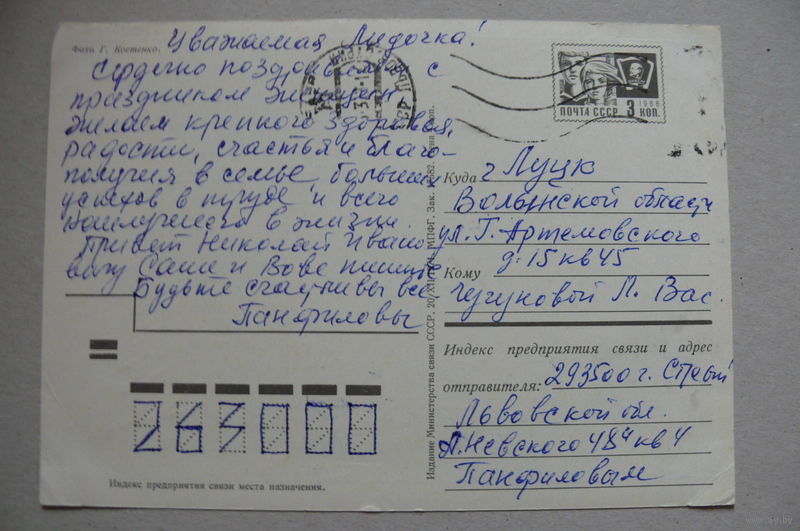 Фото Г. Костенко.
Уважаемая Лидочка!
Сердечно поздравляем с
праздником Женщин
желаем крепного здоровья,
радости, счастья и благо-
получия в семье, больших
успехов в труде и всего
наилучшего в жизни.
Привет Николай Ивано
вичу Саше и Вове пишите
Будьте счастливы все
Панфиловы
ПОЧТА СССР
1966
3 КОП.
Куда г Луцк
Волынской области
ул. Г. Артемовского
д. 15 кв 45
Кому
Чугуновой Л. Вас.
Индекс предприятия связи и адрес
отправителя: 293500 г. Стрый
Львовской обл.
А. Невского 48 кв 4
Панфиловым
263000
Индекс предприятия связи места назначения.
Издание Министерства связи СССР.
МПФГ. Зак.